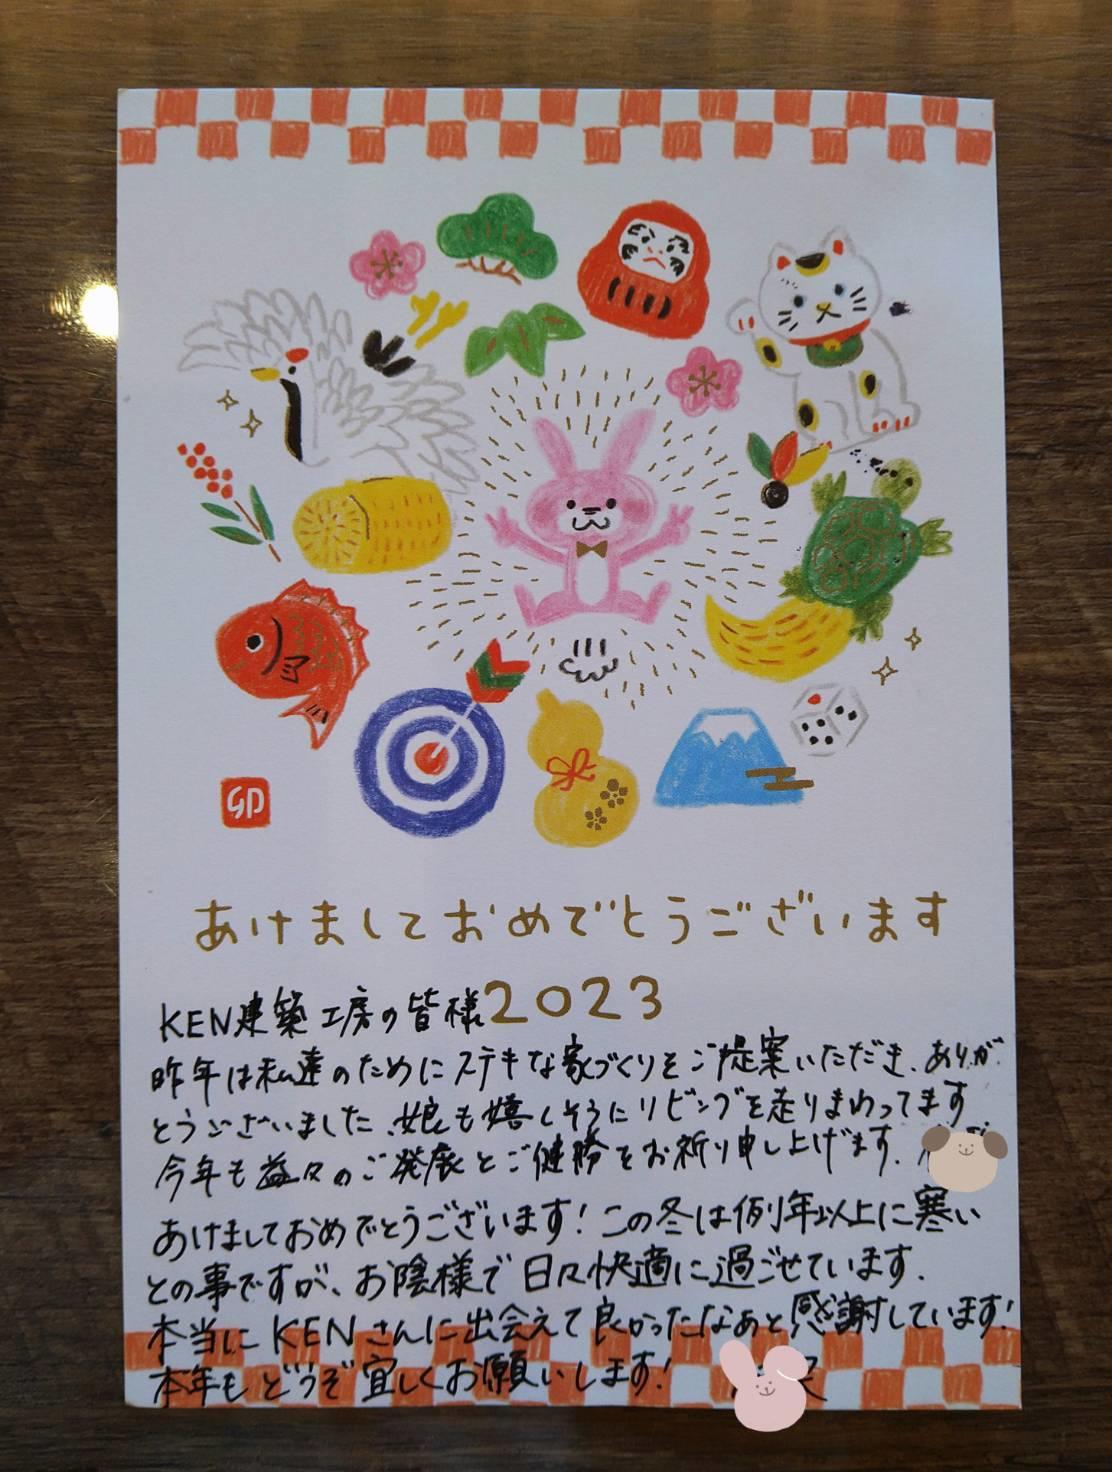 あけましておめでとうございます
2023
KEN建築工房の皆様
昨年は私達のためにステキな家づくりをご提案いただき、ありが
とうございました。娘も嬉しそうにリビングを走りまわってます
今年も益々のご発展とご健勝をお祈り申し上げます。
あけましておめでとうございます!この冬は例年以上に寒い
との事ですが、お陰様で日々快適に過ごせています。
本当にKENさんに出会えて良かったなあと感謝しています!
本年もどうぞ宜しくお願いします!